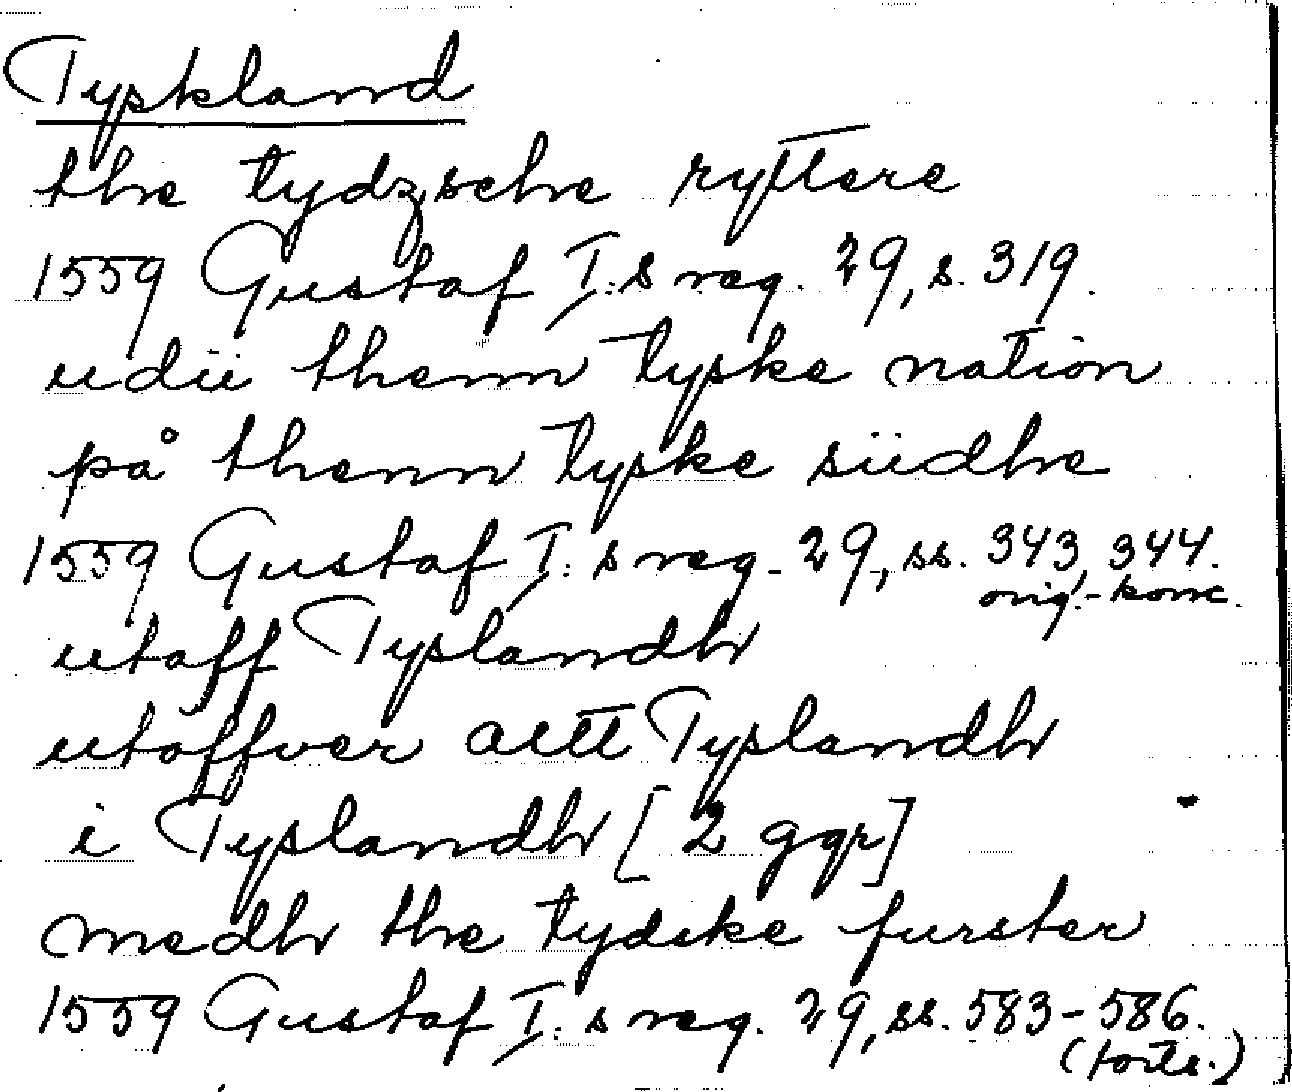 Tyskland
the tydzsche ryttere
1559 Gustaf I:s reg. 29, s. 319.
udii thenn tyske nation
på thenn tyske siidhe
1559 Gustaf I:s reg. 29, ss. 343, 344.
orig.-konc.
utaff Tyslandh
utaffver allt Tyslandh
i Tyslandh [2 ggr]
medh the tydske furster
1559 Gustaf I:s reg. 29, ss. 583-586.
(forts.)